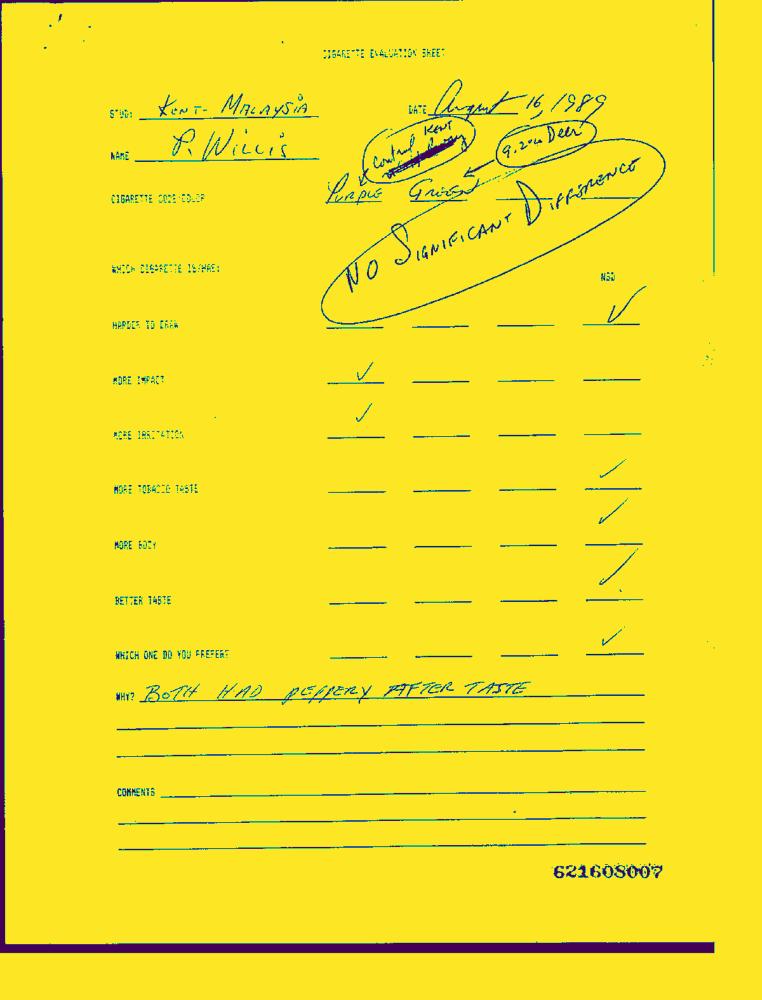 CIGARETTE EVALUATION SHEET
STUDY KENT- MALAYSIA DATE August 16, 1989
NAME P. WILLIS
Control KENT
CIGARETTE CODE COLOR PURPLE GREEN
NO SIGNIFICANT DIFFERENCE
WHICH CIGARETTE IS/HAS:
NSD
HARDER TO DRAW ✓
MORE IMPACT ✓
MORE IRRITATION ✓
MORE TOBACCO TASTE ✓
MORE BODY ✓
BETTER TASTE ✓
WHICH ONE DO YOU PREFER? ✓
WHY? BOTH HAD PEPPERY AFTER TASTE
COMMENTS
621608007